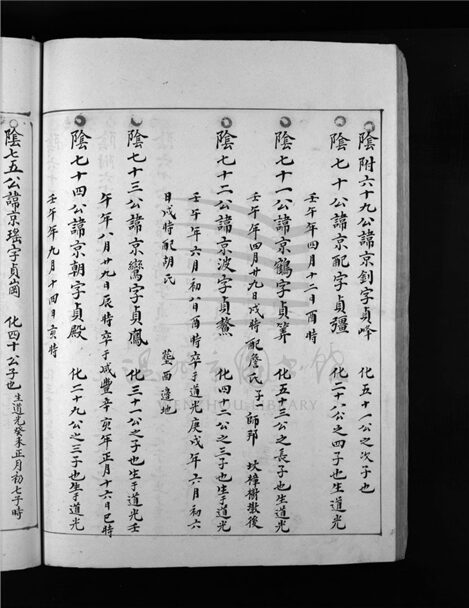 陰附六十九公諱京釗字貞峰　化五十一公之次子也
陰七十公諱京配字貞彊　化二十八公之四子也生道光
壬午年四月十二日酉特
陰七十一公諱京鶴字貞算　化五十三公之長子也生道光
壬午年四月廿九日戌特配詹氏子師邦　坟樟樹墩後
陰七十二公諱京波字貞鰲　化四十二公之三子也生于道光
壬午年六月初八日酉特卒于道光庚戌年六月初六
日戌特配胡氏　塟西邊地
陰七十三公諱京鸞字貞鳳　化三十一公之子也生于道光壬
午年八月廿九日辰特卒于咸豊辛亥年正月十六日巳特
陰七十四公諱京朝字貞殿　化二十九公之三子也生于道光
壬午年九月十四日亥特
陰七五公諱京瑤字貞崗　化四十公子也生道光癸未正月初七子時
LIBRARY